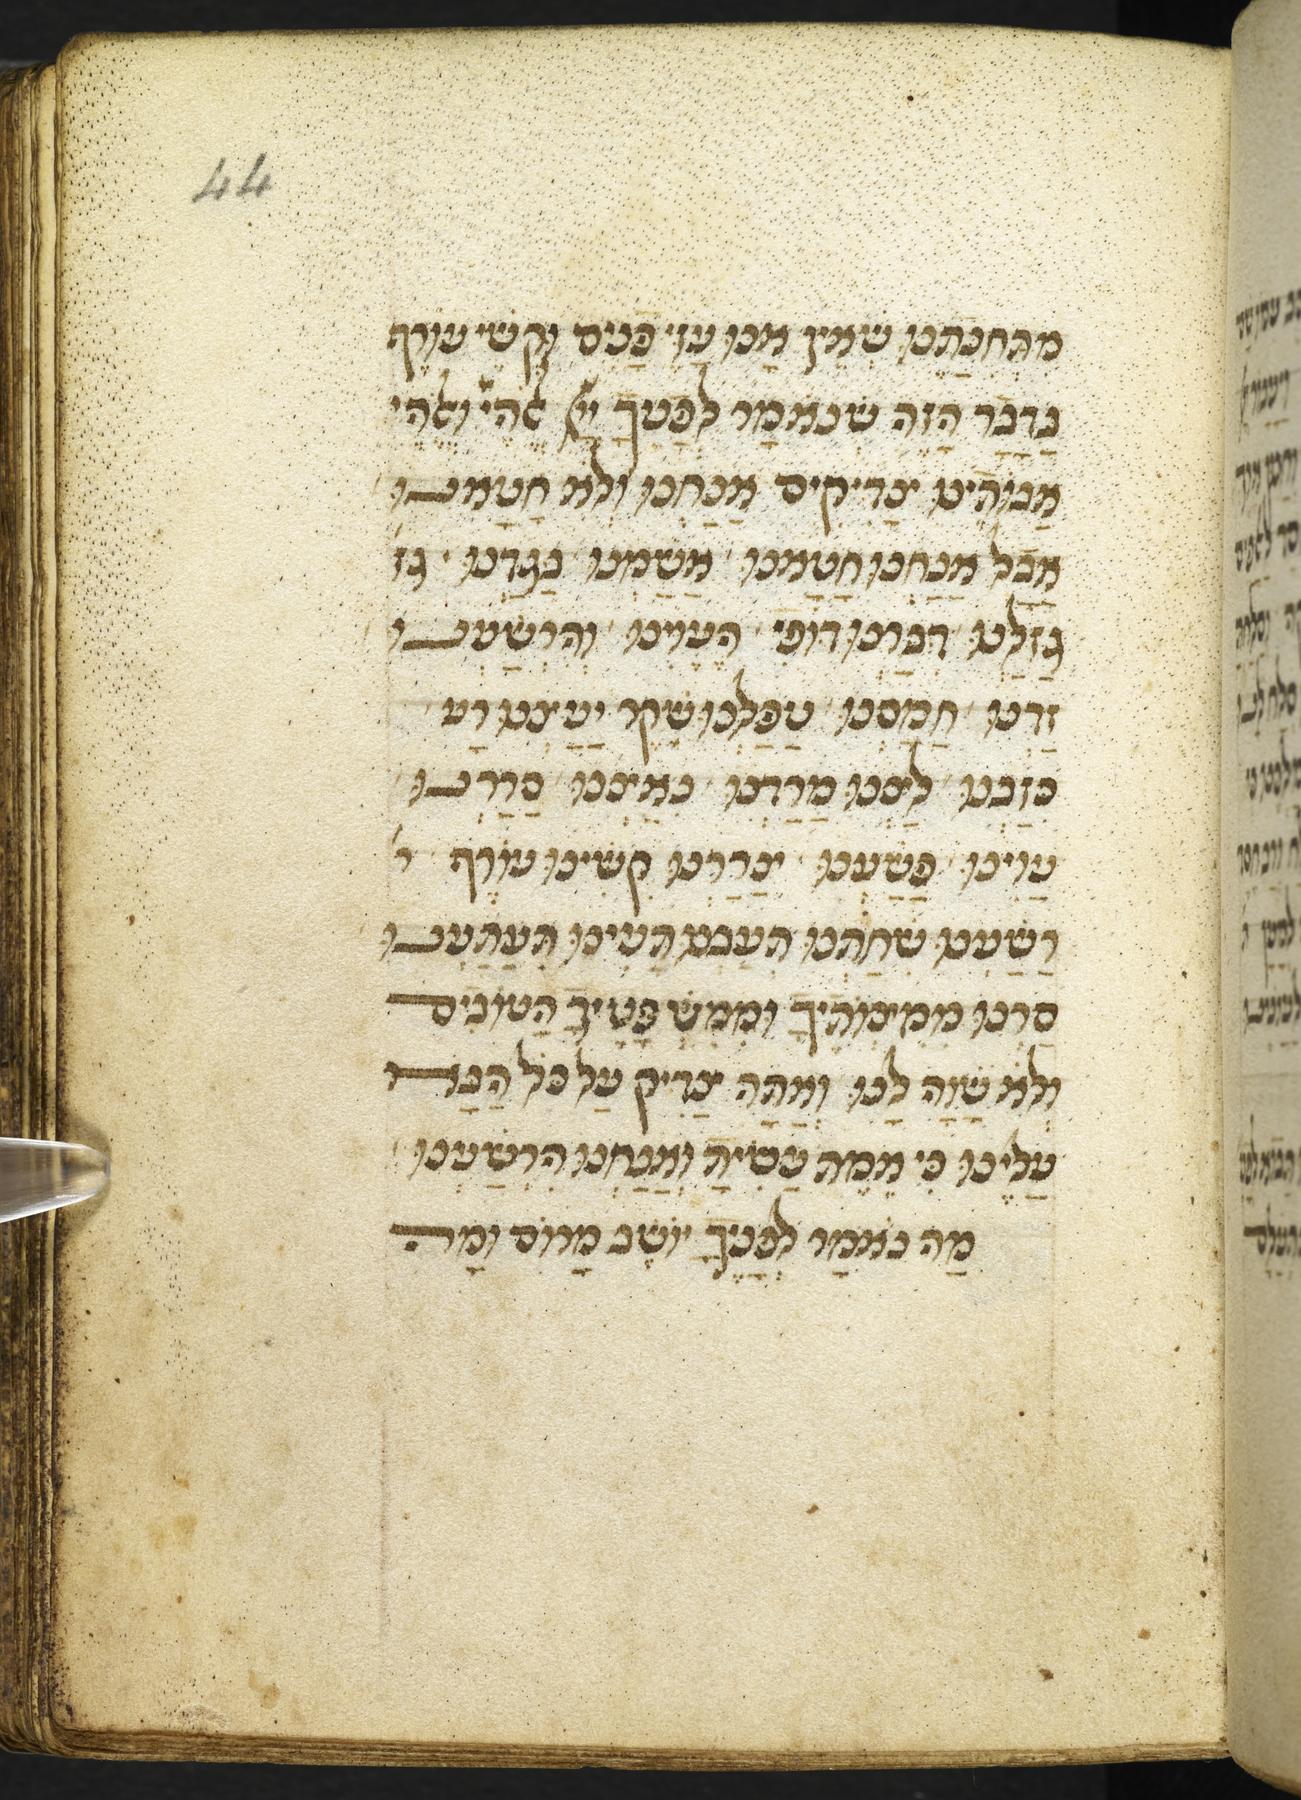 44
מִתְּחִנָּתֵנוּ שְׁאֵין אָנוּ עַזֵּי פָנִים וּקְשֵׁי עוֹרֶף
כַּדָּבָר הַזֶּה שֶׁנֹּאמַר לְפָנֶיךָ יְיָ אֱלֹהֵי וֵאלֹהֵי
אֲבוֹתֵינוּ צַדִּיקִים אֲנַחְנוּ וְלֹא חָטָאנוּ
אֲבָל אֲנַחְנוּ חָטָאנוּ אָשַׁמְנוּ בָּגַדְנוּ גז
גָּזַלְנוּ דִּבַּרְנוּ דוֹפִי הֶעֱוִינוּ וְהִרְשַׁעְנוּ
זַדְנוּ חָמַסְנוּ טָפַלְנוּ שֶׁקֶר יָעַצְנוּ רָע
כִּזַּבְנוּ לַצְנוּ מָרַדְנוּ נִאַצְנוּ סָרַרְנוּ
עָוִינוּ פָּשַׁעְנוּ צָרַרְנוּ קִשִּׁינוּ עוֹרֶף ר
רָשַׁעְנוּ שִׁחַתְנוּ תִּעַבְנוּ תָּעִינוּ תִּעְתַּעְנוּ
סַרְנוּ מִמִּצְוֹתֶיךָ וּמִמִּשְׁפָּטֶיךָ הַטּוֹבִים
וְלֹא שָׁוָה לָנוּ וְאַתָּה צַדִּיק עַל כָּל הַבָּא
עָלֵינוּ כִּי אֱמֶת עָשִׂיתָ וַאֲנַחְנוּ הִרְשָׁעְנוּ
מַה נֹּאמַר לְפָנֶיךָ יוֹשֵׁב מָרוֹם וּמָה